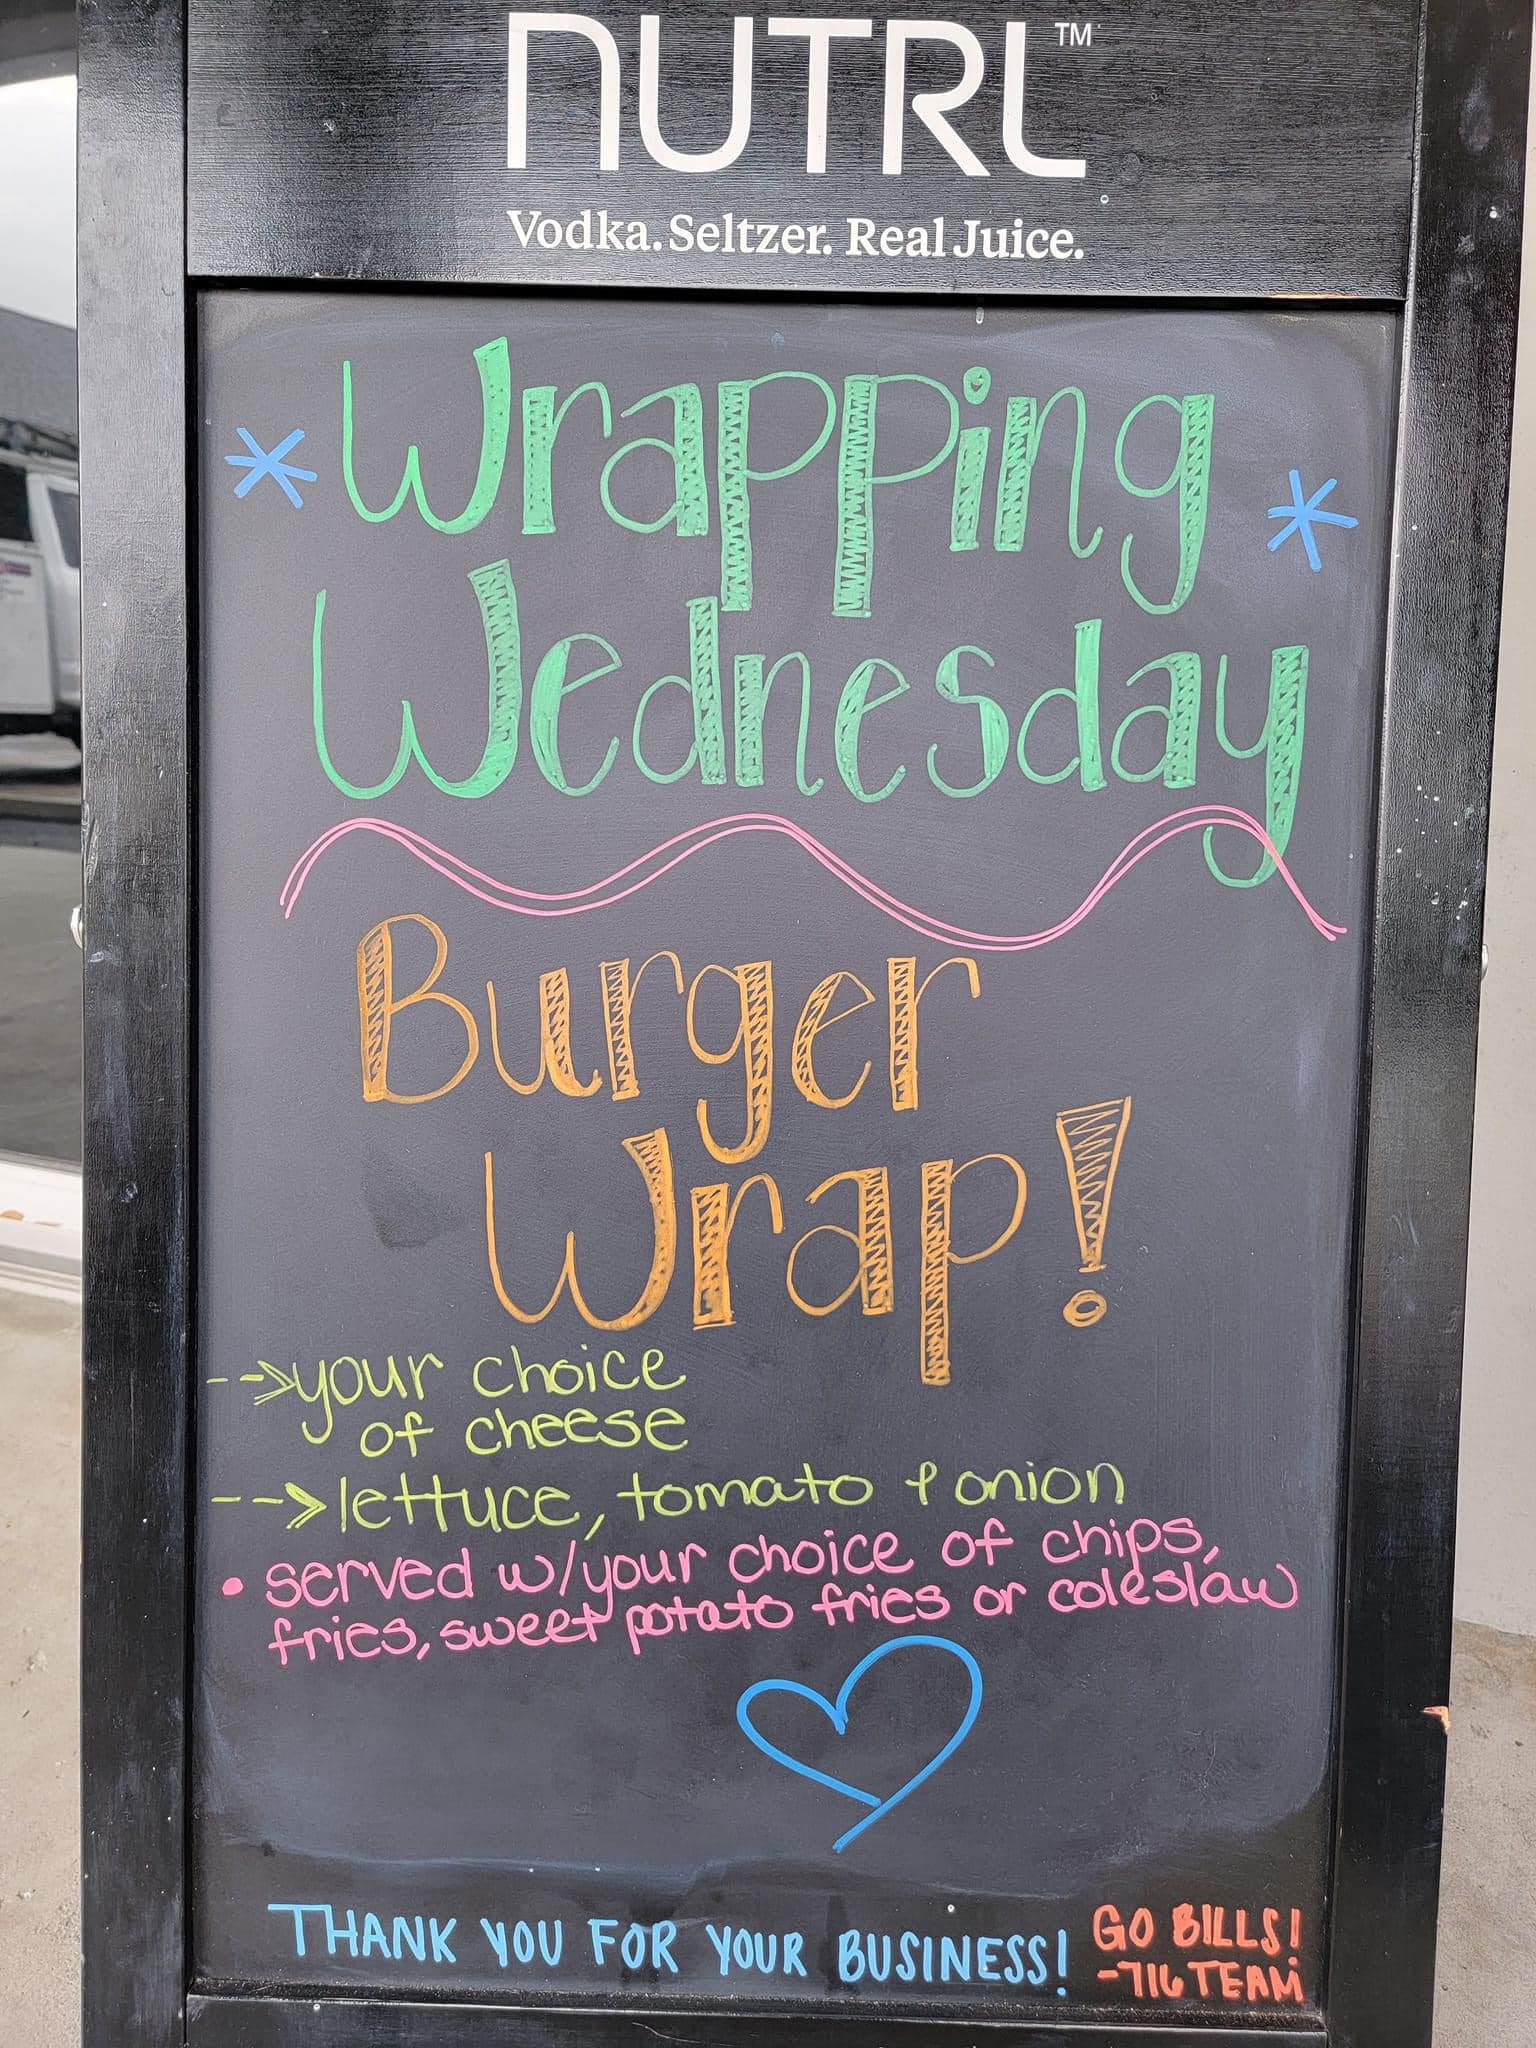 NUTRL™
Vodka. Seltzer. Real Juice.
* Wrapping *
Wednesday
Burger
Wrap!
-->your choice
of cheese
-->lettuce, tomato & onion
• served w/your choice of chips,
fries, sweet potato fries or coleslaw
THANK YOU FOR YOUR BUSINESS!
GO BILLS!
-716 TEAM